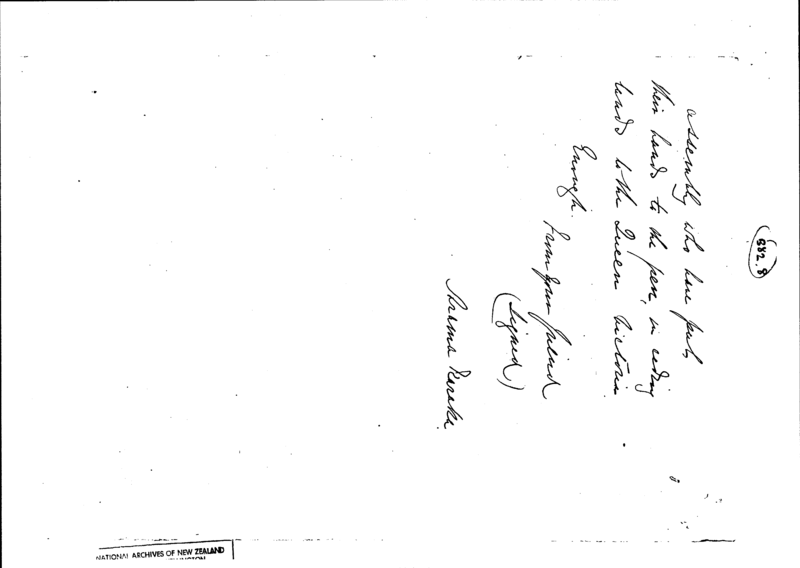 882.8
assembly who have put
their hands to the pen, in ceding
lands to the Queen Victoria
Enough.
From your friend
(Signed)
NATIONAL ARCHIVES OF NEW ZEALAND